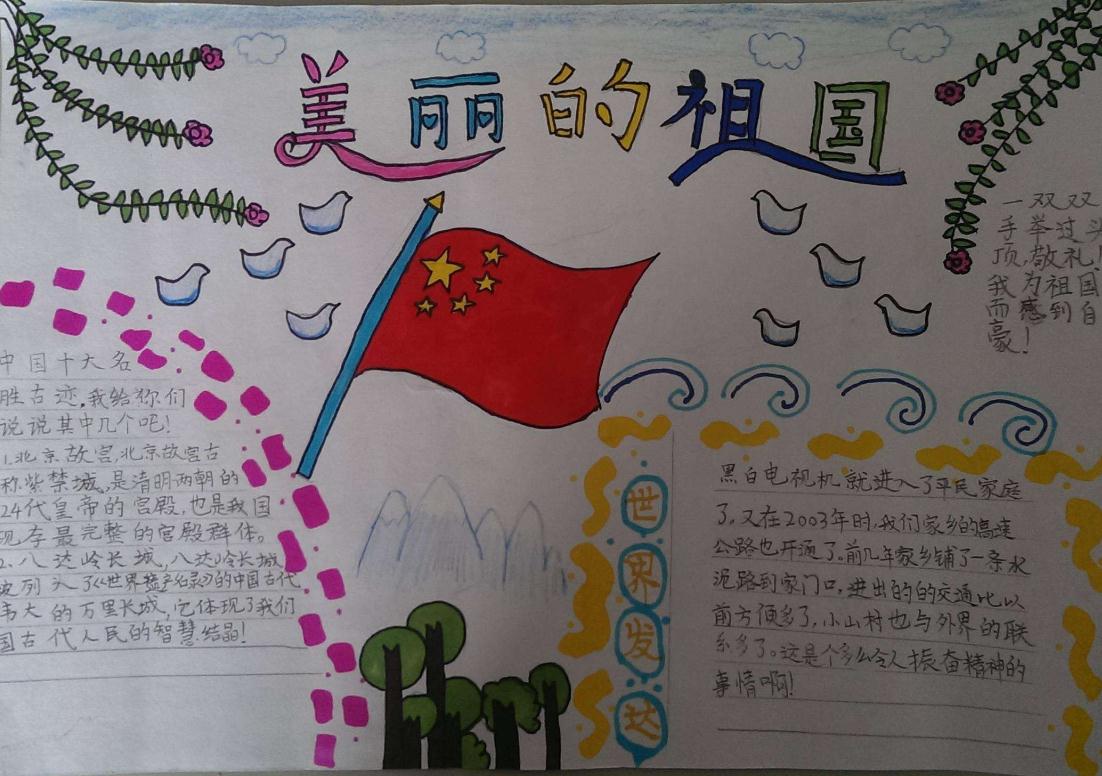 美丽的祖国
一双双
手举过头
顶,敬礼!
我为祖国
而感到自
豪!
中国十大名
胜古迹,我给你们
说说其中几个吧!
1.北京故宫,北京故宫古
称紫禁城,是清明两朝的
24代皇帝的宫殿,也是我国
现存最完整的宫殿群体。
2.八达岭长城,八达岭长城
被列入了《世界遗产名录》的中国古代
伟大的万里长城,它体现了我们
国古代人民的智慧结晶!
世界发达
黑白电视机就进入了平民家庭
了,又在2003年时,我们家乡的高速
公路也开通了。前几年家乡铺了一条水
泥路到家门口,进出的的交通比以
前方便多了,小山村也与外界的联
系多了。这是个多么令人振奋精神的
事情啊!